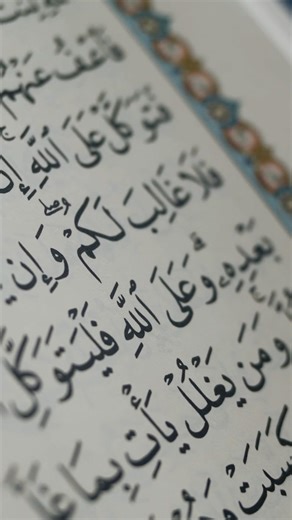 فَٱعْفُ عَنْهُمْ
فَتَوَكَّلْ عَلَى ٱللَّهِ إِنَّ
فَلَا غَالِبَ لَكُمْ ۖ وَإِن
بَعْدِهِۦ ۗ وَعَلَى ٱللَّهِ فَلْيَتَوَكَّلِ
وَمَن يَغْلُلْ يَأْتِ بِمَا غَلَّ
كَسَبَتْ